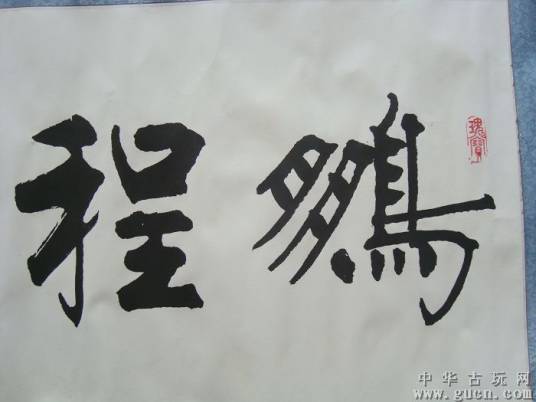 鵬程
中华古玩网
www.gucn.com